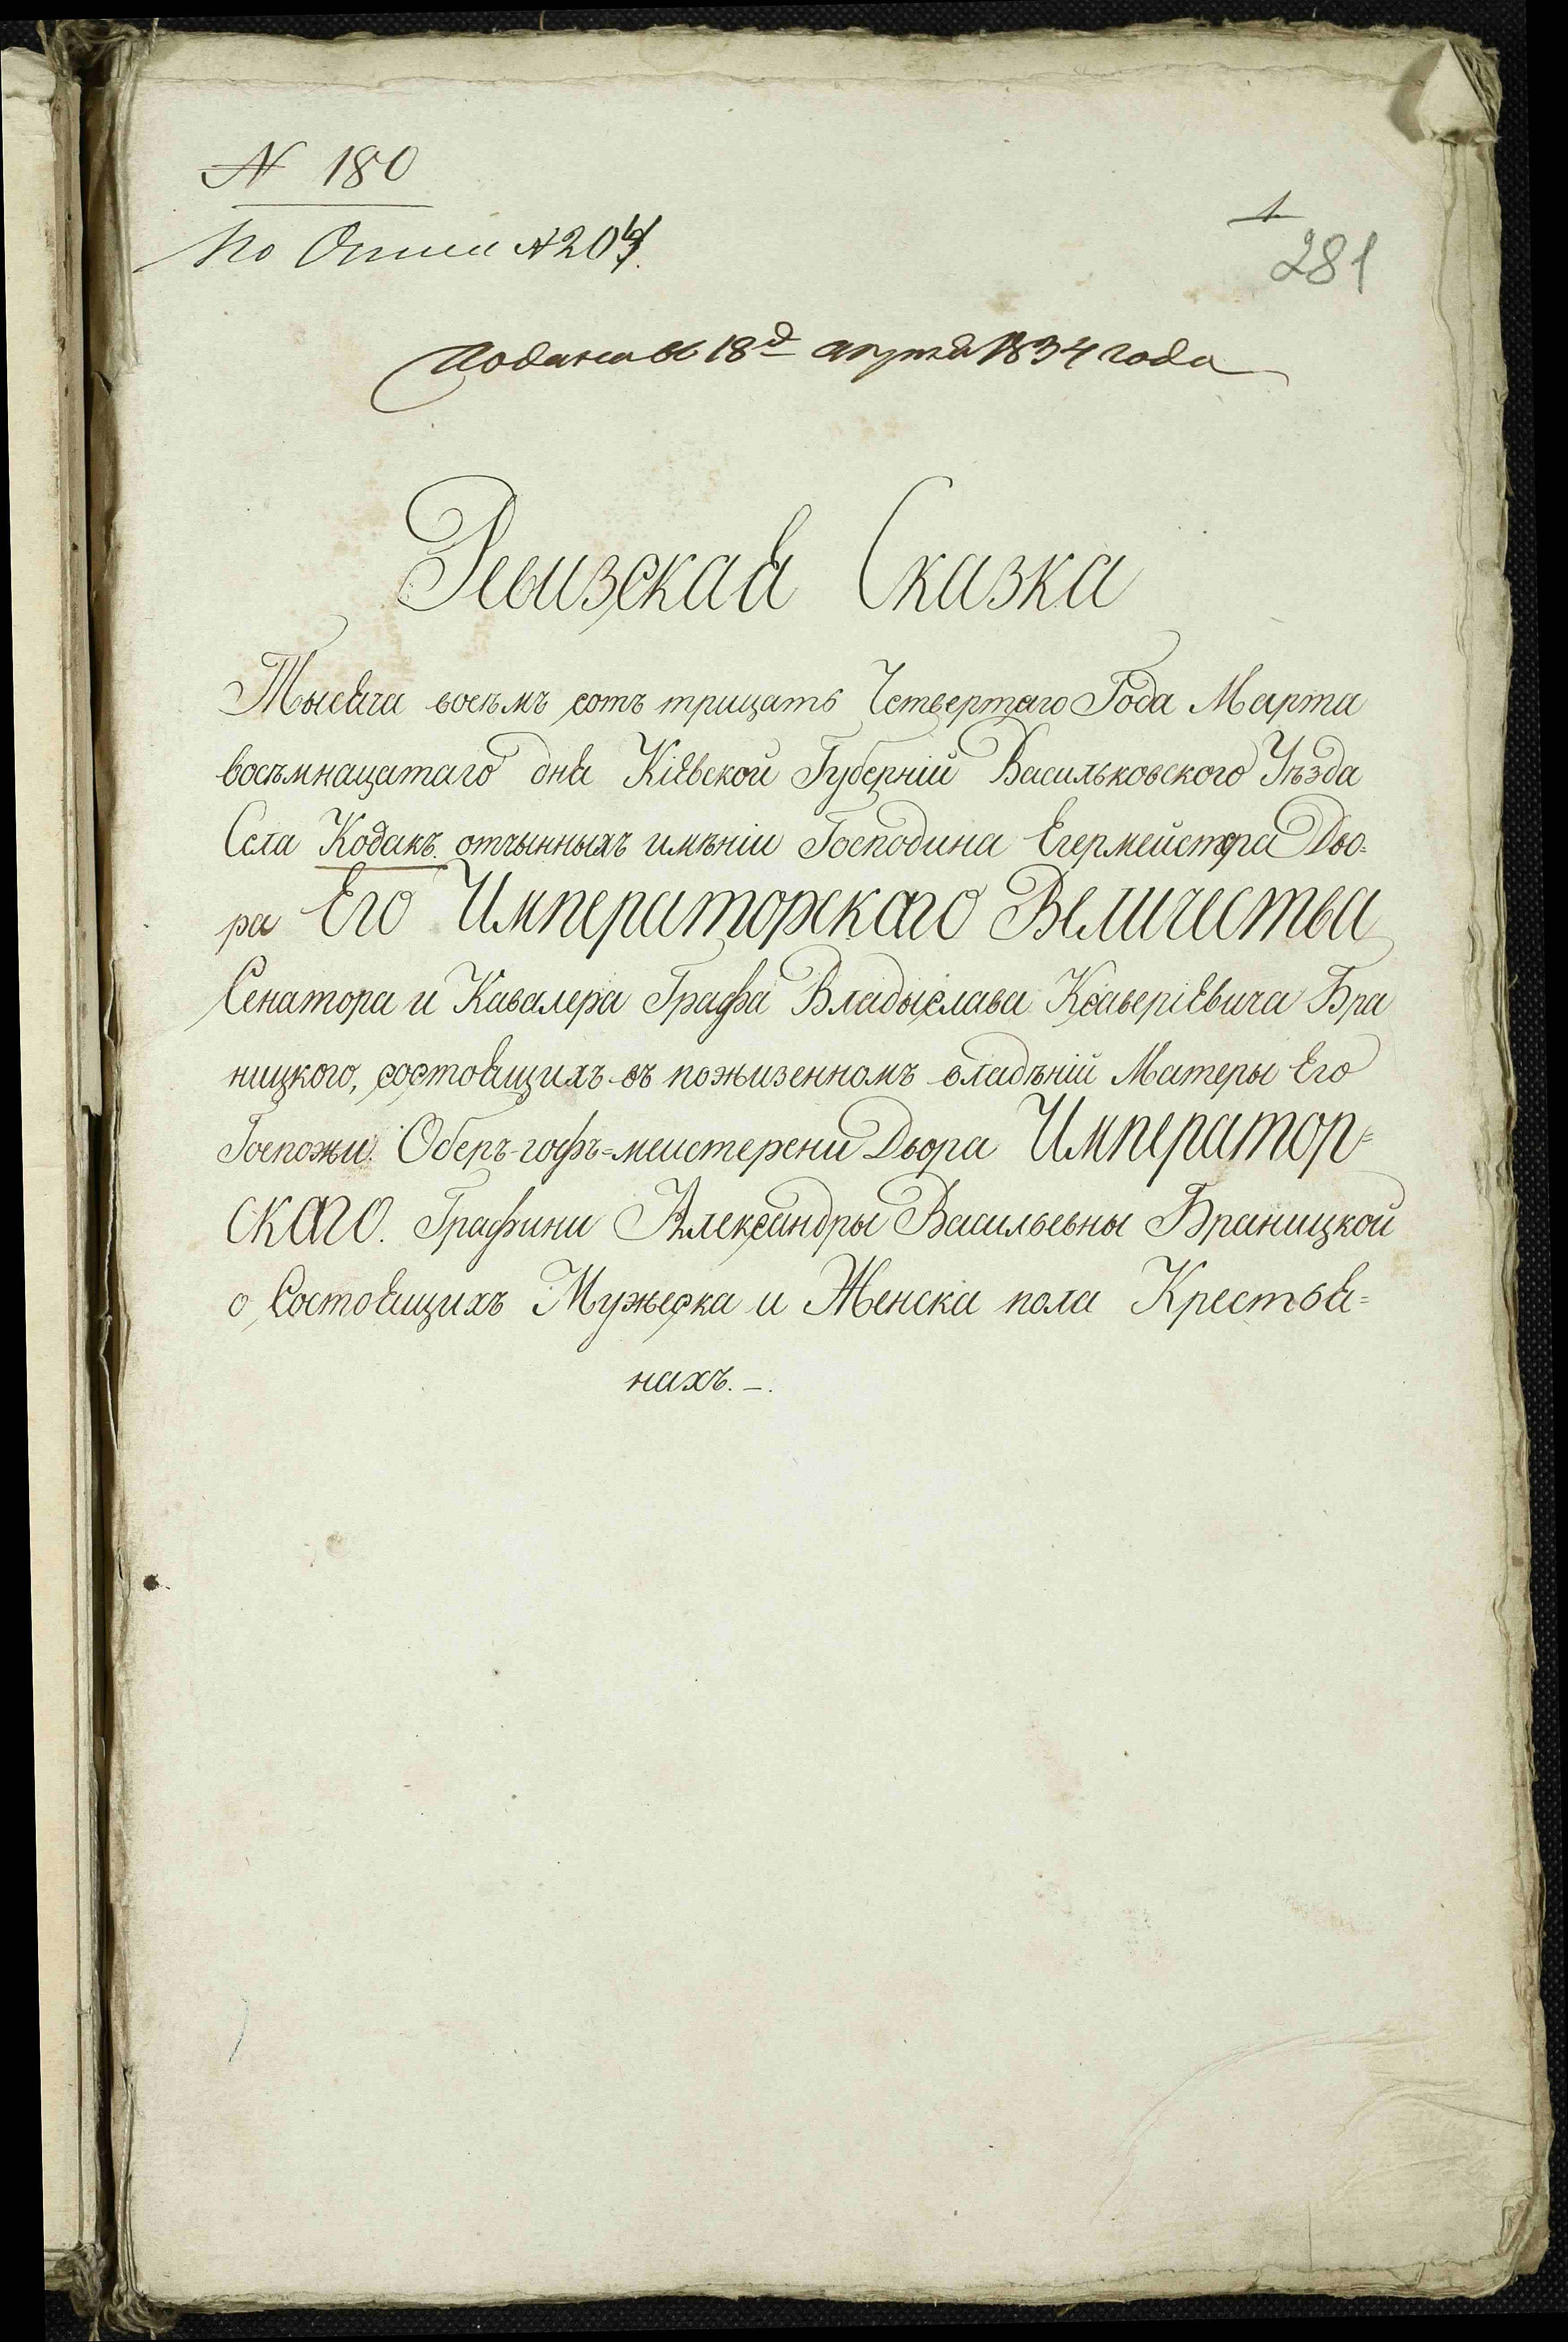 № 180
По Описи № 204
1
281
Подана 18д апреля 1834 года
Ревизская Сказка
Тысяча восемъ сотъ трицать Четвертаго Года Марта
восъмнацатаго дня Кіевской Губерніи Васильковского Уѣзда
Села Кодакъ отчынныхъ имѣніи Господина Егермейстера Дво=
ра Его Императорскаго Величества
Сенатора и Кавалера Графа Владыслава Ксаверіевича Бра
ницкого, состоящихъ въ пожизенномъ владѣній Матеры Его
Госпожи Оберъ-гофъ=меистерени Двора Император=
скаго. Графини Александры Васильевны Браницкой
о Состоящихъ Мужеска и Женска пола Крестья=
нахъ. –.